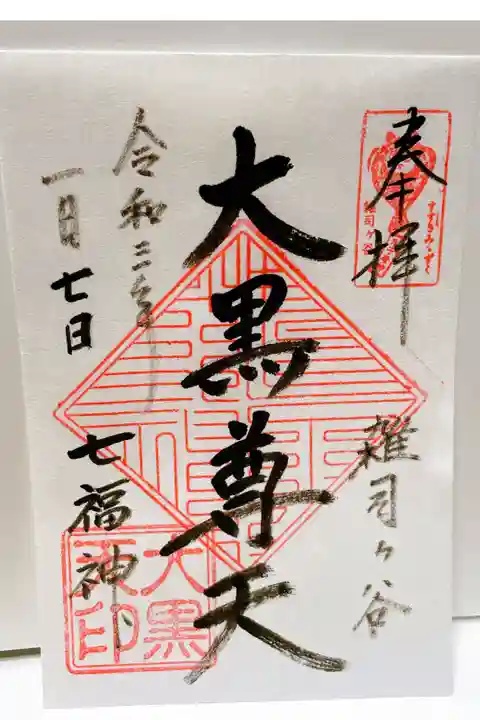 奉拝
雑司ヶ谷
すすきみみずく
雑司ヶ谷
大黒尊天
令和三年
一月七日
七福神
大黒
天印